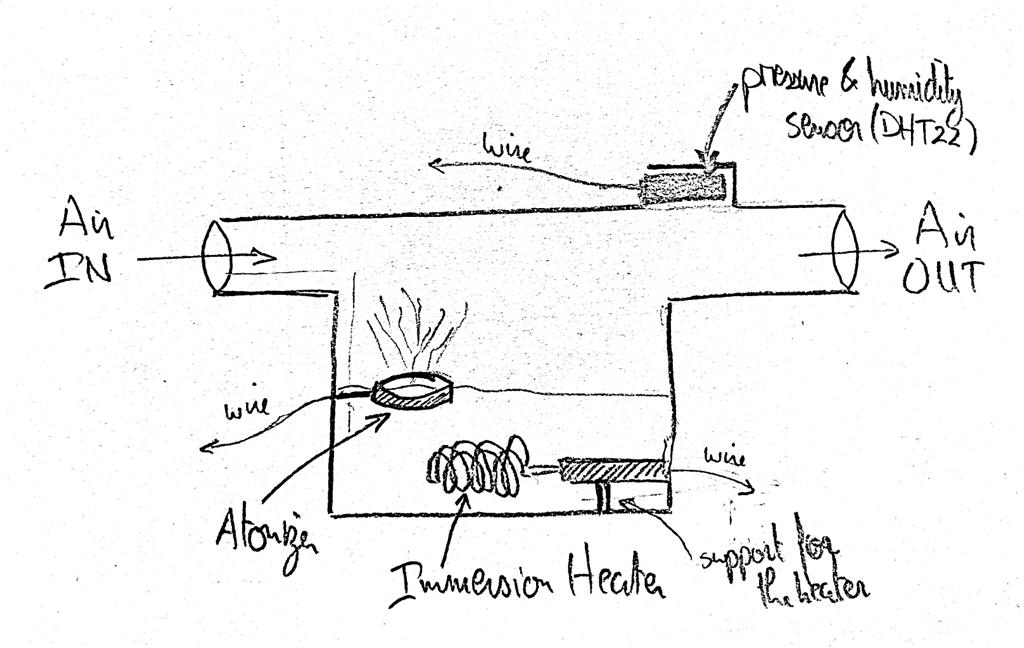 pressure & humidity
sensor (DHT22)
wire
Air
IN
Air
OUT
wire
wire
Atomizer
Immersion Heater
support for
the heater